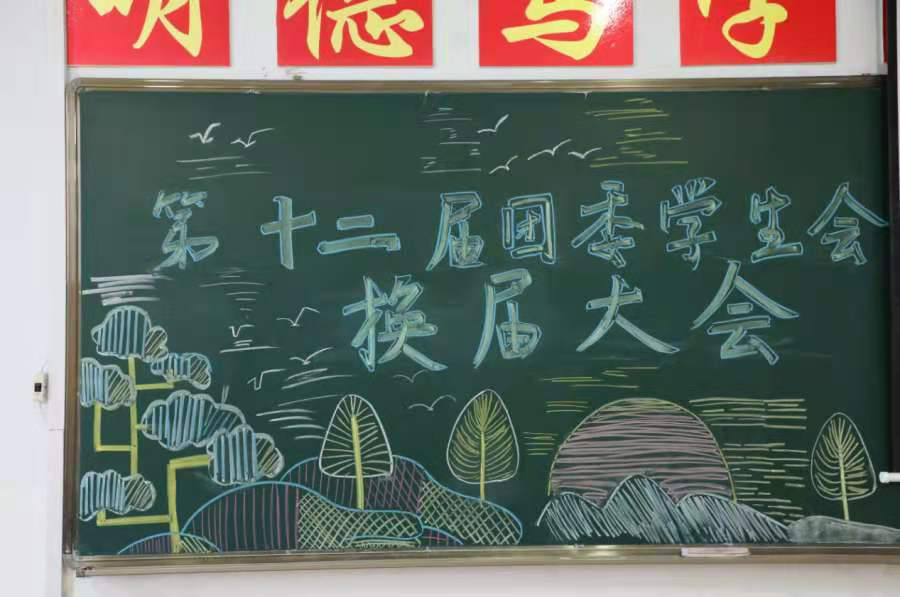 明德为学
第十二届团委学生会
换届大会